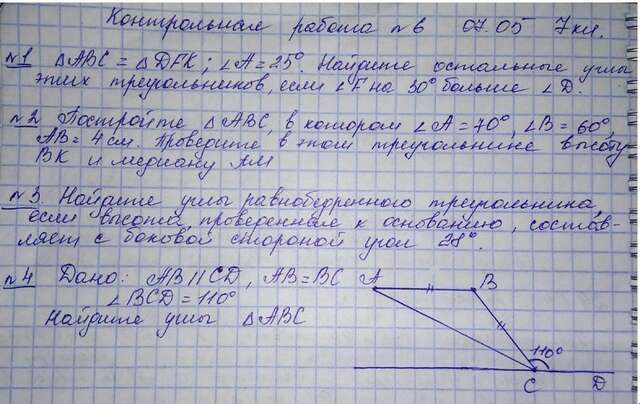 Контрольная работа №6 07.05 7кл.
№1 △ABC = △DFK; ∠A=25°. Найдите остальные углы
этих треугольников, если ∠F на 30° больше ∠D.
№2 Постройте △ABC, в котором ∠A=70°, ∠B=60°,
AB=4см. Проведите в этом треугольнике высоту
BK и медиану AM
№3. Найдите углы равнобедренного треугольника,
если высота, проведенная к основанию, состав-
ляет с боковой стороной угол 28°.
№4 Дано: AB||CD, AB=BC
∠BCD=110°
Найдите углы △ABC
A B
110°
C D